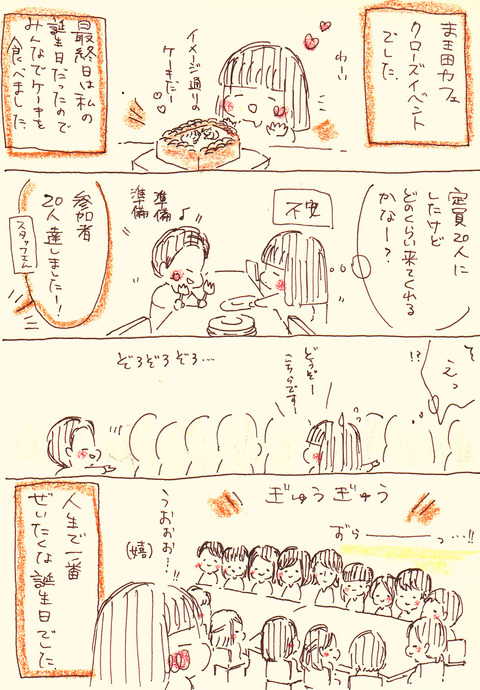 まま田カフェ
クローズイベント
でした。
わーい
イメージ通りの
ケーキだー
最終日は私の
誕生日だったので
みんなでケーキを
食べました。
定員20人に
したけど
どのくらい来てくれる
かなー?
不安
準備
準備♪
参加者
20人達しましたー!
スタッフさん
えっ
!?
どうぞー
こちらですー
ぞろぞろぞろ…
ぎゅうぎゅう
おら――っ…!!
うおおお…!!
(嬉)
人生で一番
ぜいたくな誕生日でした